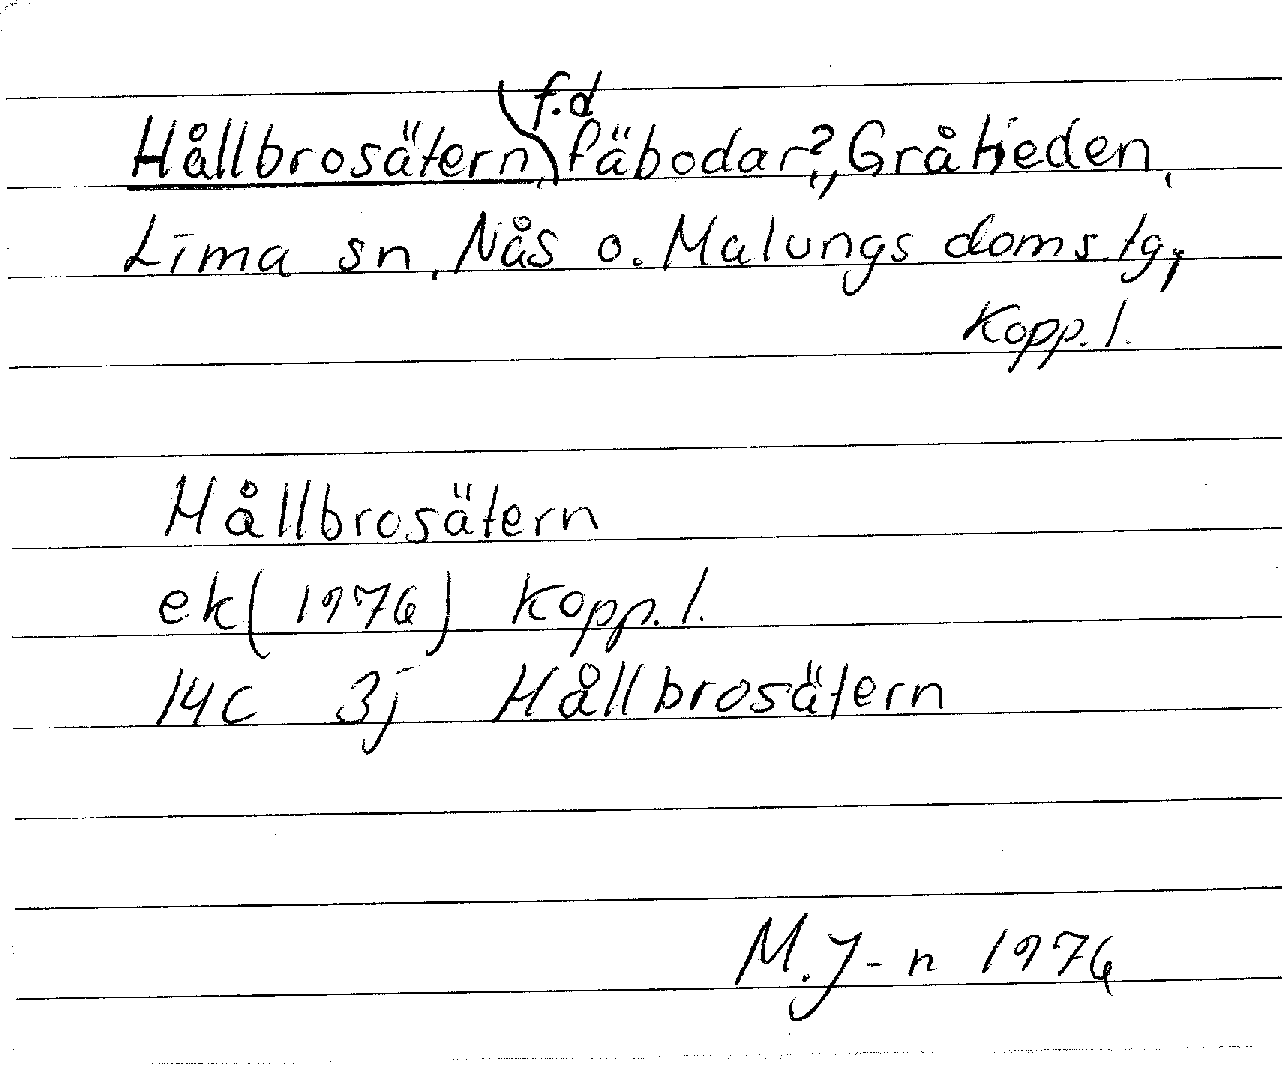 Hållbrosätern, f.d fäbodar?, Gråheden,
Lima sn. Nås o. Malungs doms.lg;
Kopp. l.
Hållbrosätern
ek (1976) Kopp. l.
14C 3j Hållbrosätern
M.J-n 1976